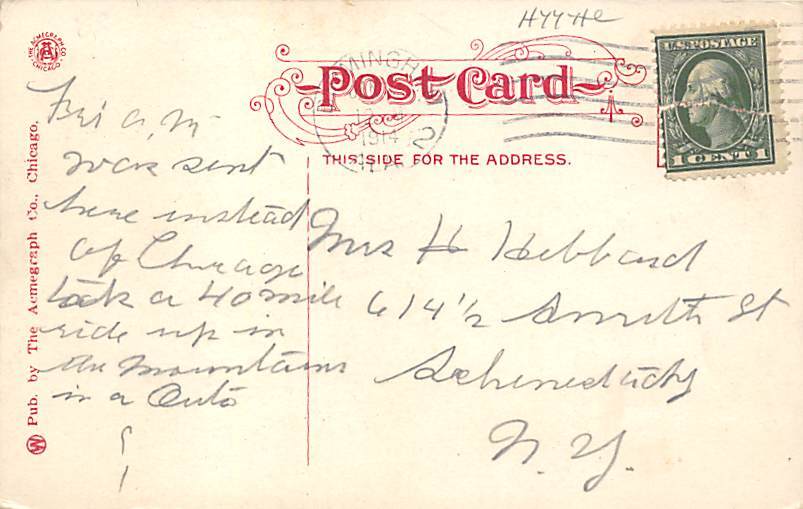 HYYHE
THE ACMEGRAPH CO. CHICAGO.
U.S. POSTAGE
1 CENT 1
MINGH
1914
2
ALA
Post Card
THIS SIDE FOR THE ADDRESS.
Fri a,m
was sent
here instead
of Chicago
took a 40 mile
ride up in
the mountains
in a Auto
Mrs H Hebbard
614 1/2 Smith St
Schenectady
N. Y.
W Pub. by The Acmegraph Co., Chicago.